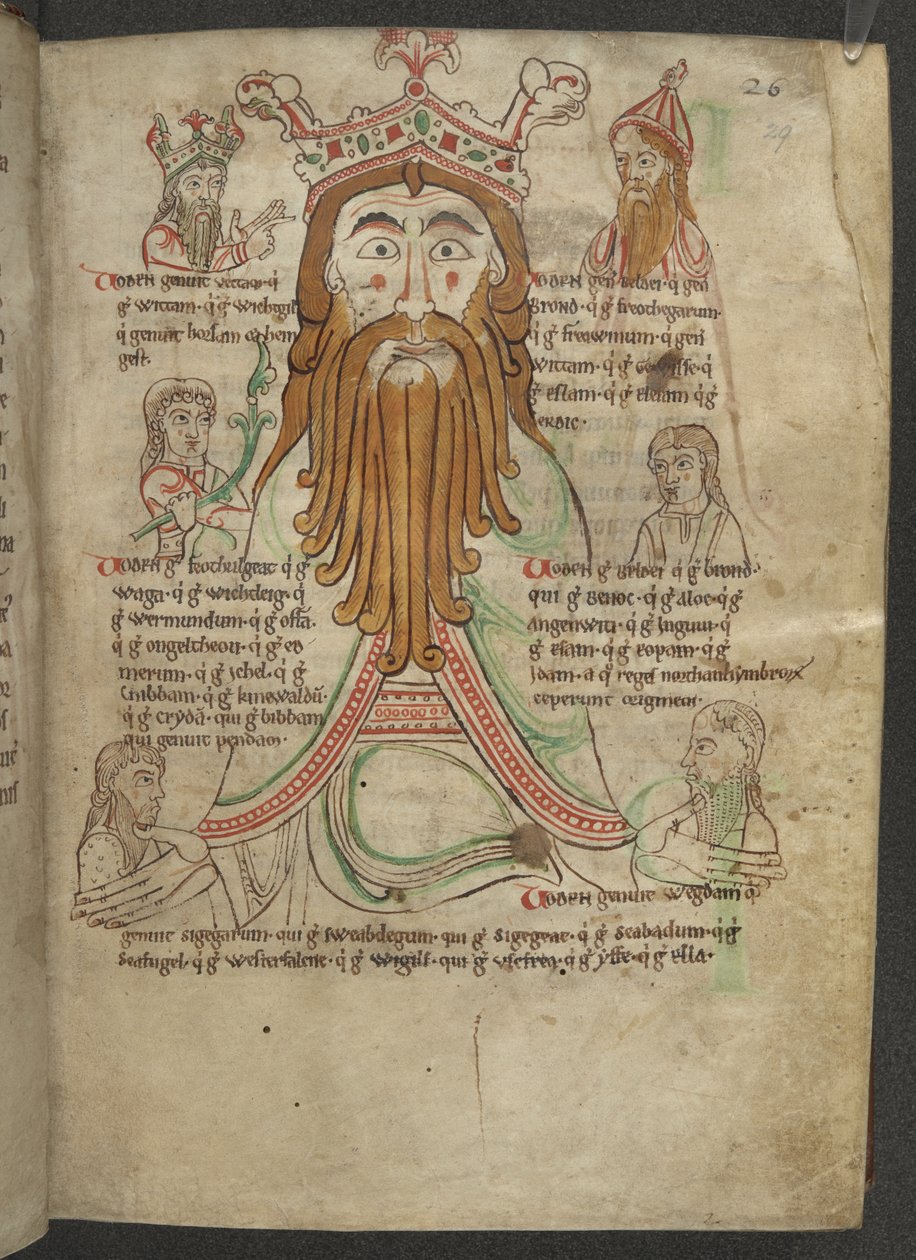 26
29
Woden genuit vectam· q̇
g̊ wittam· q̇ g̊ wichtgil
q̇ genuit horsam & hen
gest·
Woden gen̄ belder· q̇ gen̄
Brond· q̇ g̊ freothegarum·
q̇ g̊ freawinum· q̇ gen̄
wittam· q̇ g̊ q̇
g̊ eslam· q̇ g̊ eleiam q̇ g̊
cerdic·
Woden g̊ frothulgeat q̇ g̊
waga· q̇ g̊ wichtleig· q̇
g̊ wermundum· q̇ g̊ offā·
q̇ g̊ ongeltheou· q̇ g̊ eo
merum· q̇ g̊ ichel· q̇ g̊
cnibbam· q̇ g̊ kinewaldū·
q̇ g̊ crydā· qui g̊ bibbam
qui genuit pendam·
Woden g̊ beldei q̇ g̊ brond·
qui g̊ benoc· q̇ g̊ aloc· q̇ g̊
angenwiti· q̇ g̊ inguui· q̇
g̊ esam· q̇ g̊ eopam· q̇ g̊
idam· a q̊ reges northanhymbroꝝ
ceperunt originem·
Woden genuit wegdam q̇
genuit sigegarum· qui g̊ sweabdegum· qui g̊ sigegeat· q̇ g̊ seabadum· q̇ g̊
seafugel· q̇ g̊ westerfalcne· q̇ g̊ wigils· qui g̊ uscfrea· q̇ g̊ yffe· q̇ g̊ ella·